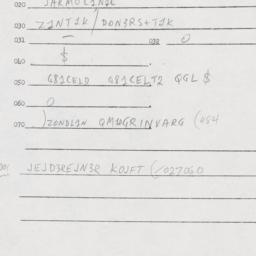 020 JARMOLINIL
030 Z1NT1K/DON3RS+T1K
031 — 032 O
$
040
050 G81CELD G81CELT2 QGL $
060 O
070 )ZONDL1N QMWGRINVARG (054
001 JEJD3REJN3R KOJFT (/027060